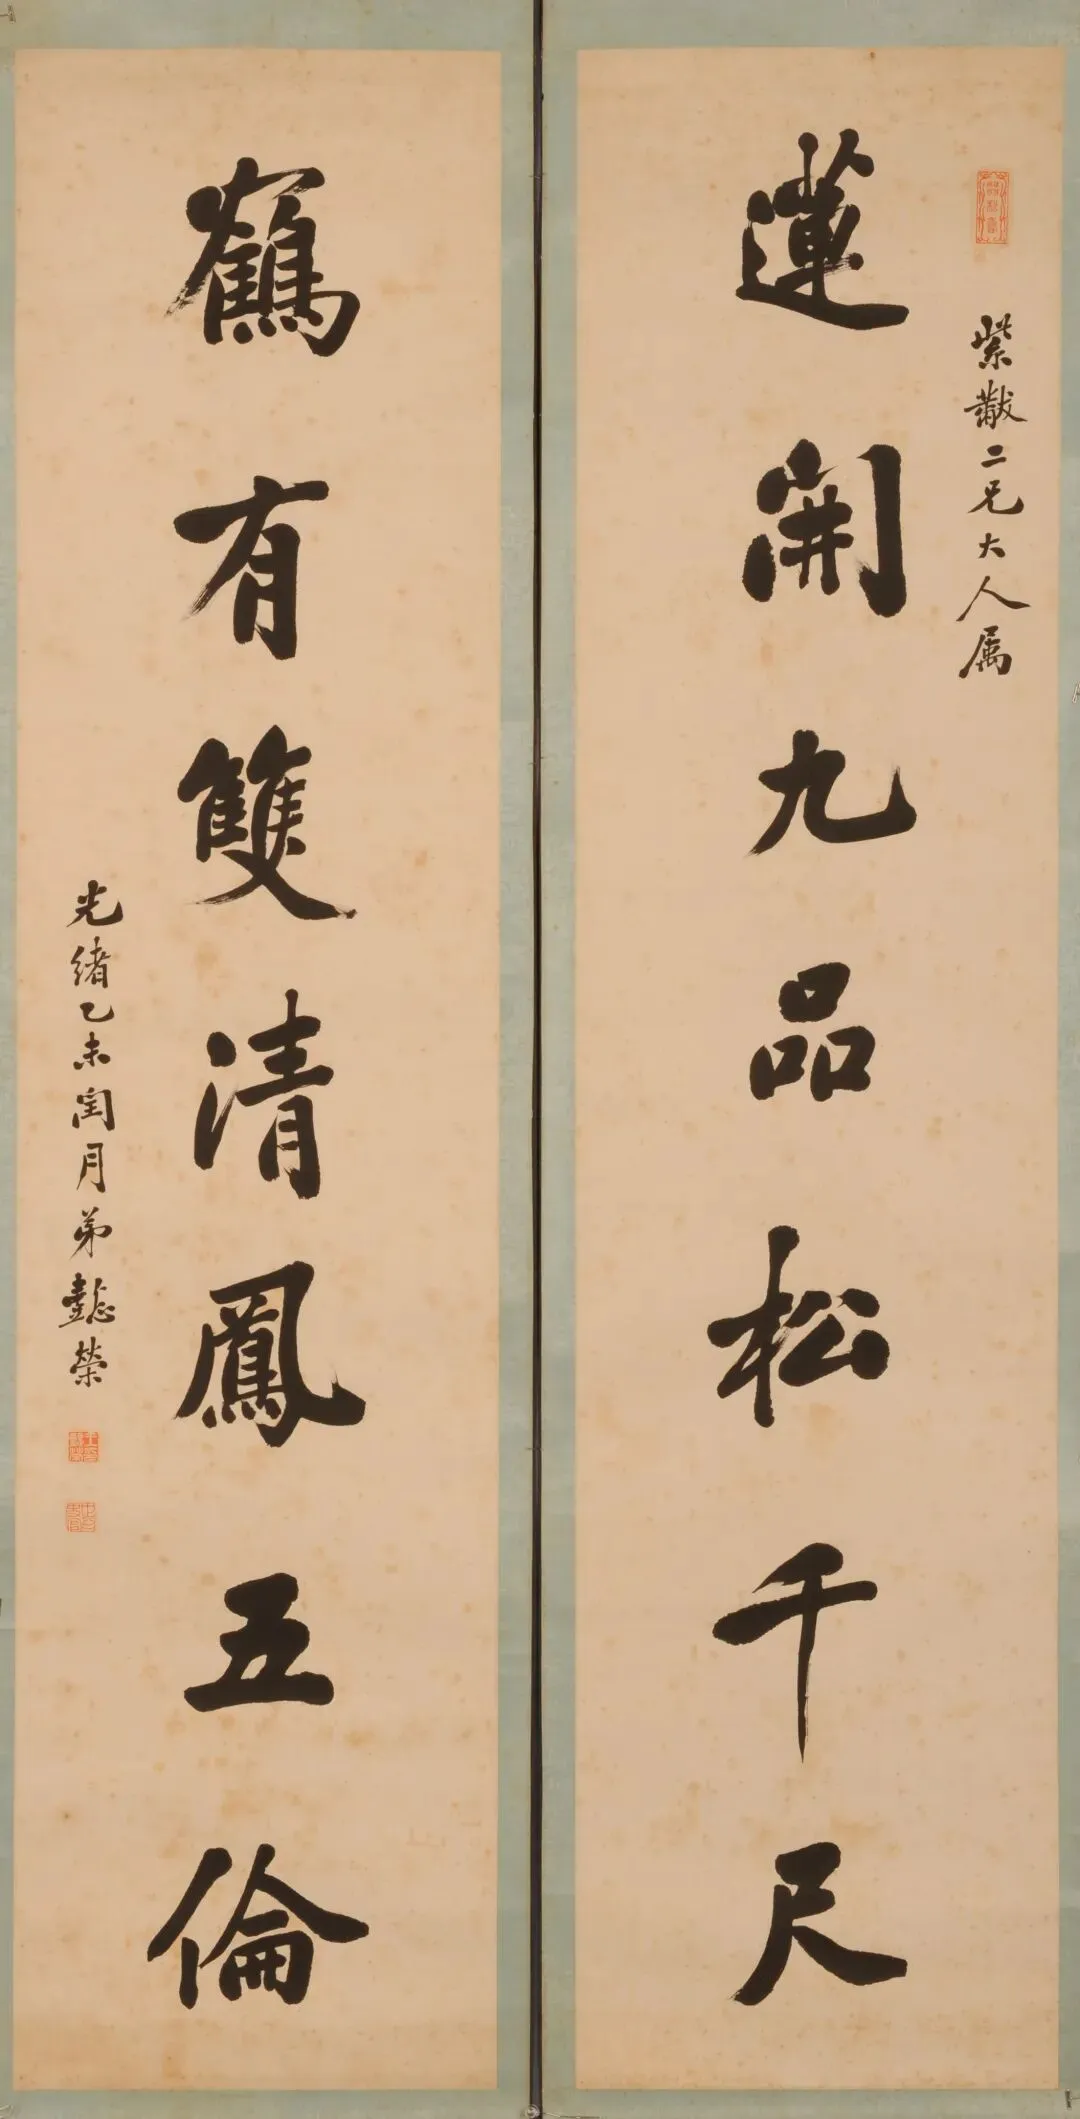 紫黻二兄大人属
蓮開九品松千尺
鶴有雙清鳳五倫
光緒乙未閏月弟懿榮